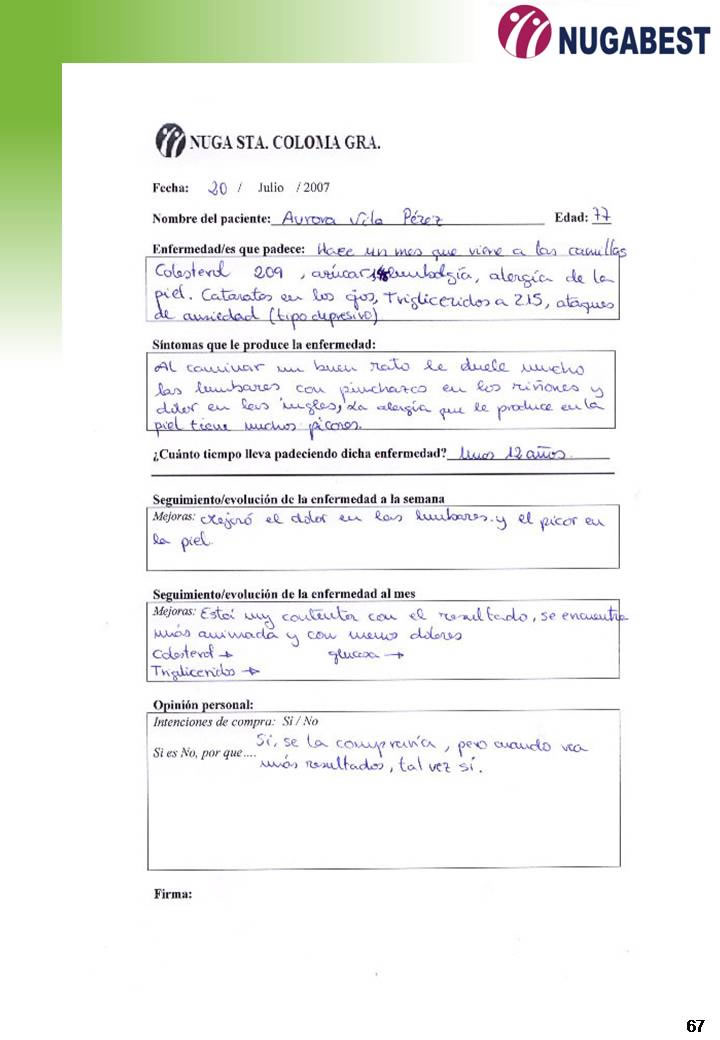 NUGABEST
NUGA STA. COLOMA GRA.
Fecha: 20 / Julio / 2007
Nombre del paciente: Aurora Vila Pérez Edad: 77
Enfermedad/es que padece: Hace un mes que viene a las camillas
Colesterol 209, azúcar lumbalgía, alergía de la
piel. Cataratas en los ojos, Trigliceridos a 215, ataques
de ansiedad (tipo depresivo)
Síntomas que le produce la enfermedad:
Al caminar un buen rato le duele mucho
las lumbares con pinchazos en los riñones y
dolor en las ingles, La alergia que le produce en la
piel tiene muchos picores.
¿Cuánto tiempo lleva padeciendo dicha enfermedad? Unos 12 años.
Seguimiento/evolución de la enfermedad a la semana
Mejoras: Mejoró el dolor en las lumbares y el picor en
la piel.
Seguimiento/evolución de la enfermedad al mes
Mejoras: Está muy contenta con el resultado, se encuentra
más animada y con menos dolores
Colesterol → glucosa →
Trigliceridos →
Opinión personal:
Intenciones de compra: Si / No
Si, se la compraría, pero cuando vea
Si es No, por que....
más resultados, tal vez sí.
Firma:
67